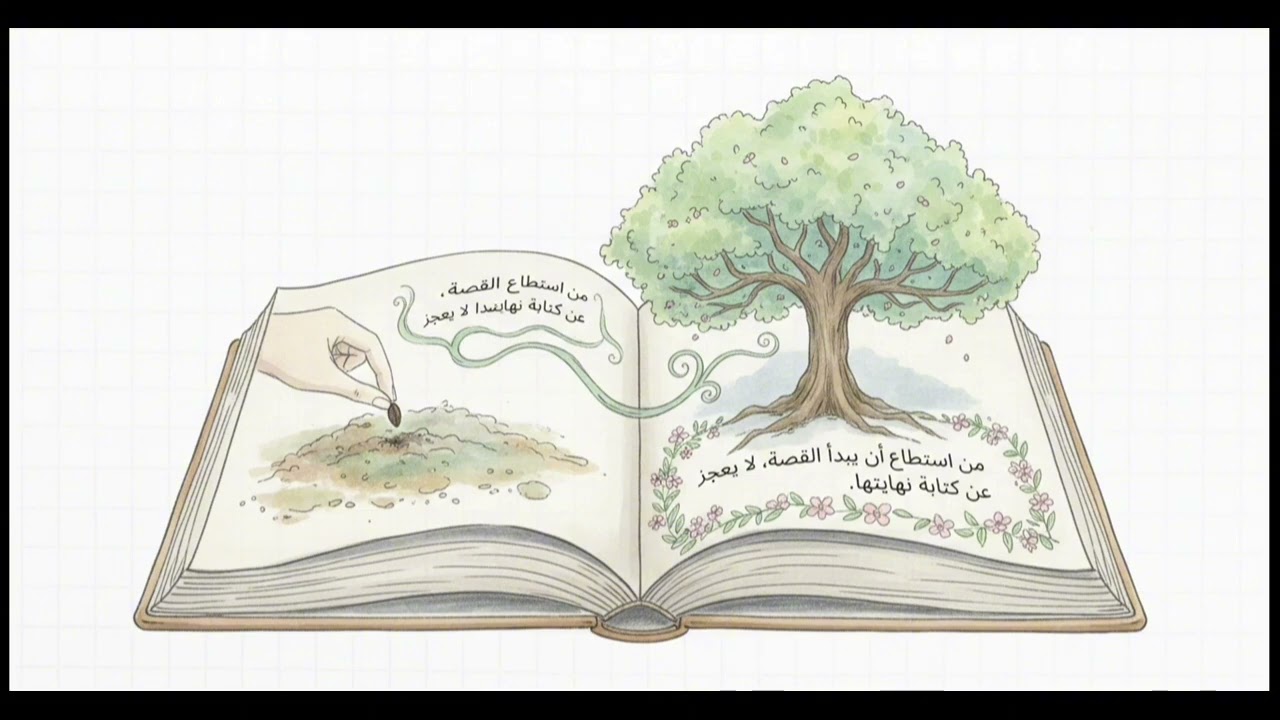 من استطاع القصة،
عن كتابة نهايتدا لا يعجز
من استطاع أن يبدأ القصة، لا يعجز
عن كتابة نهايتها.